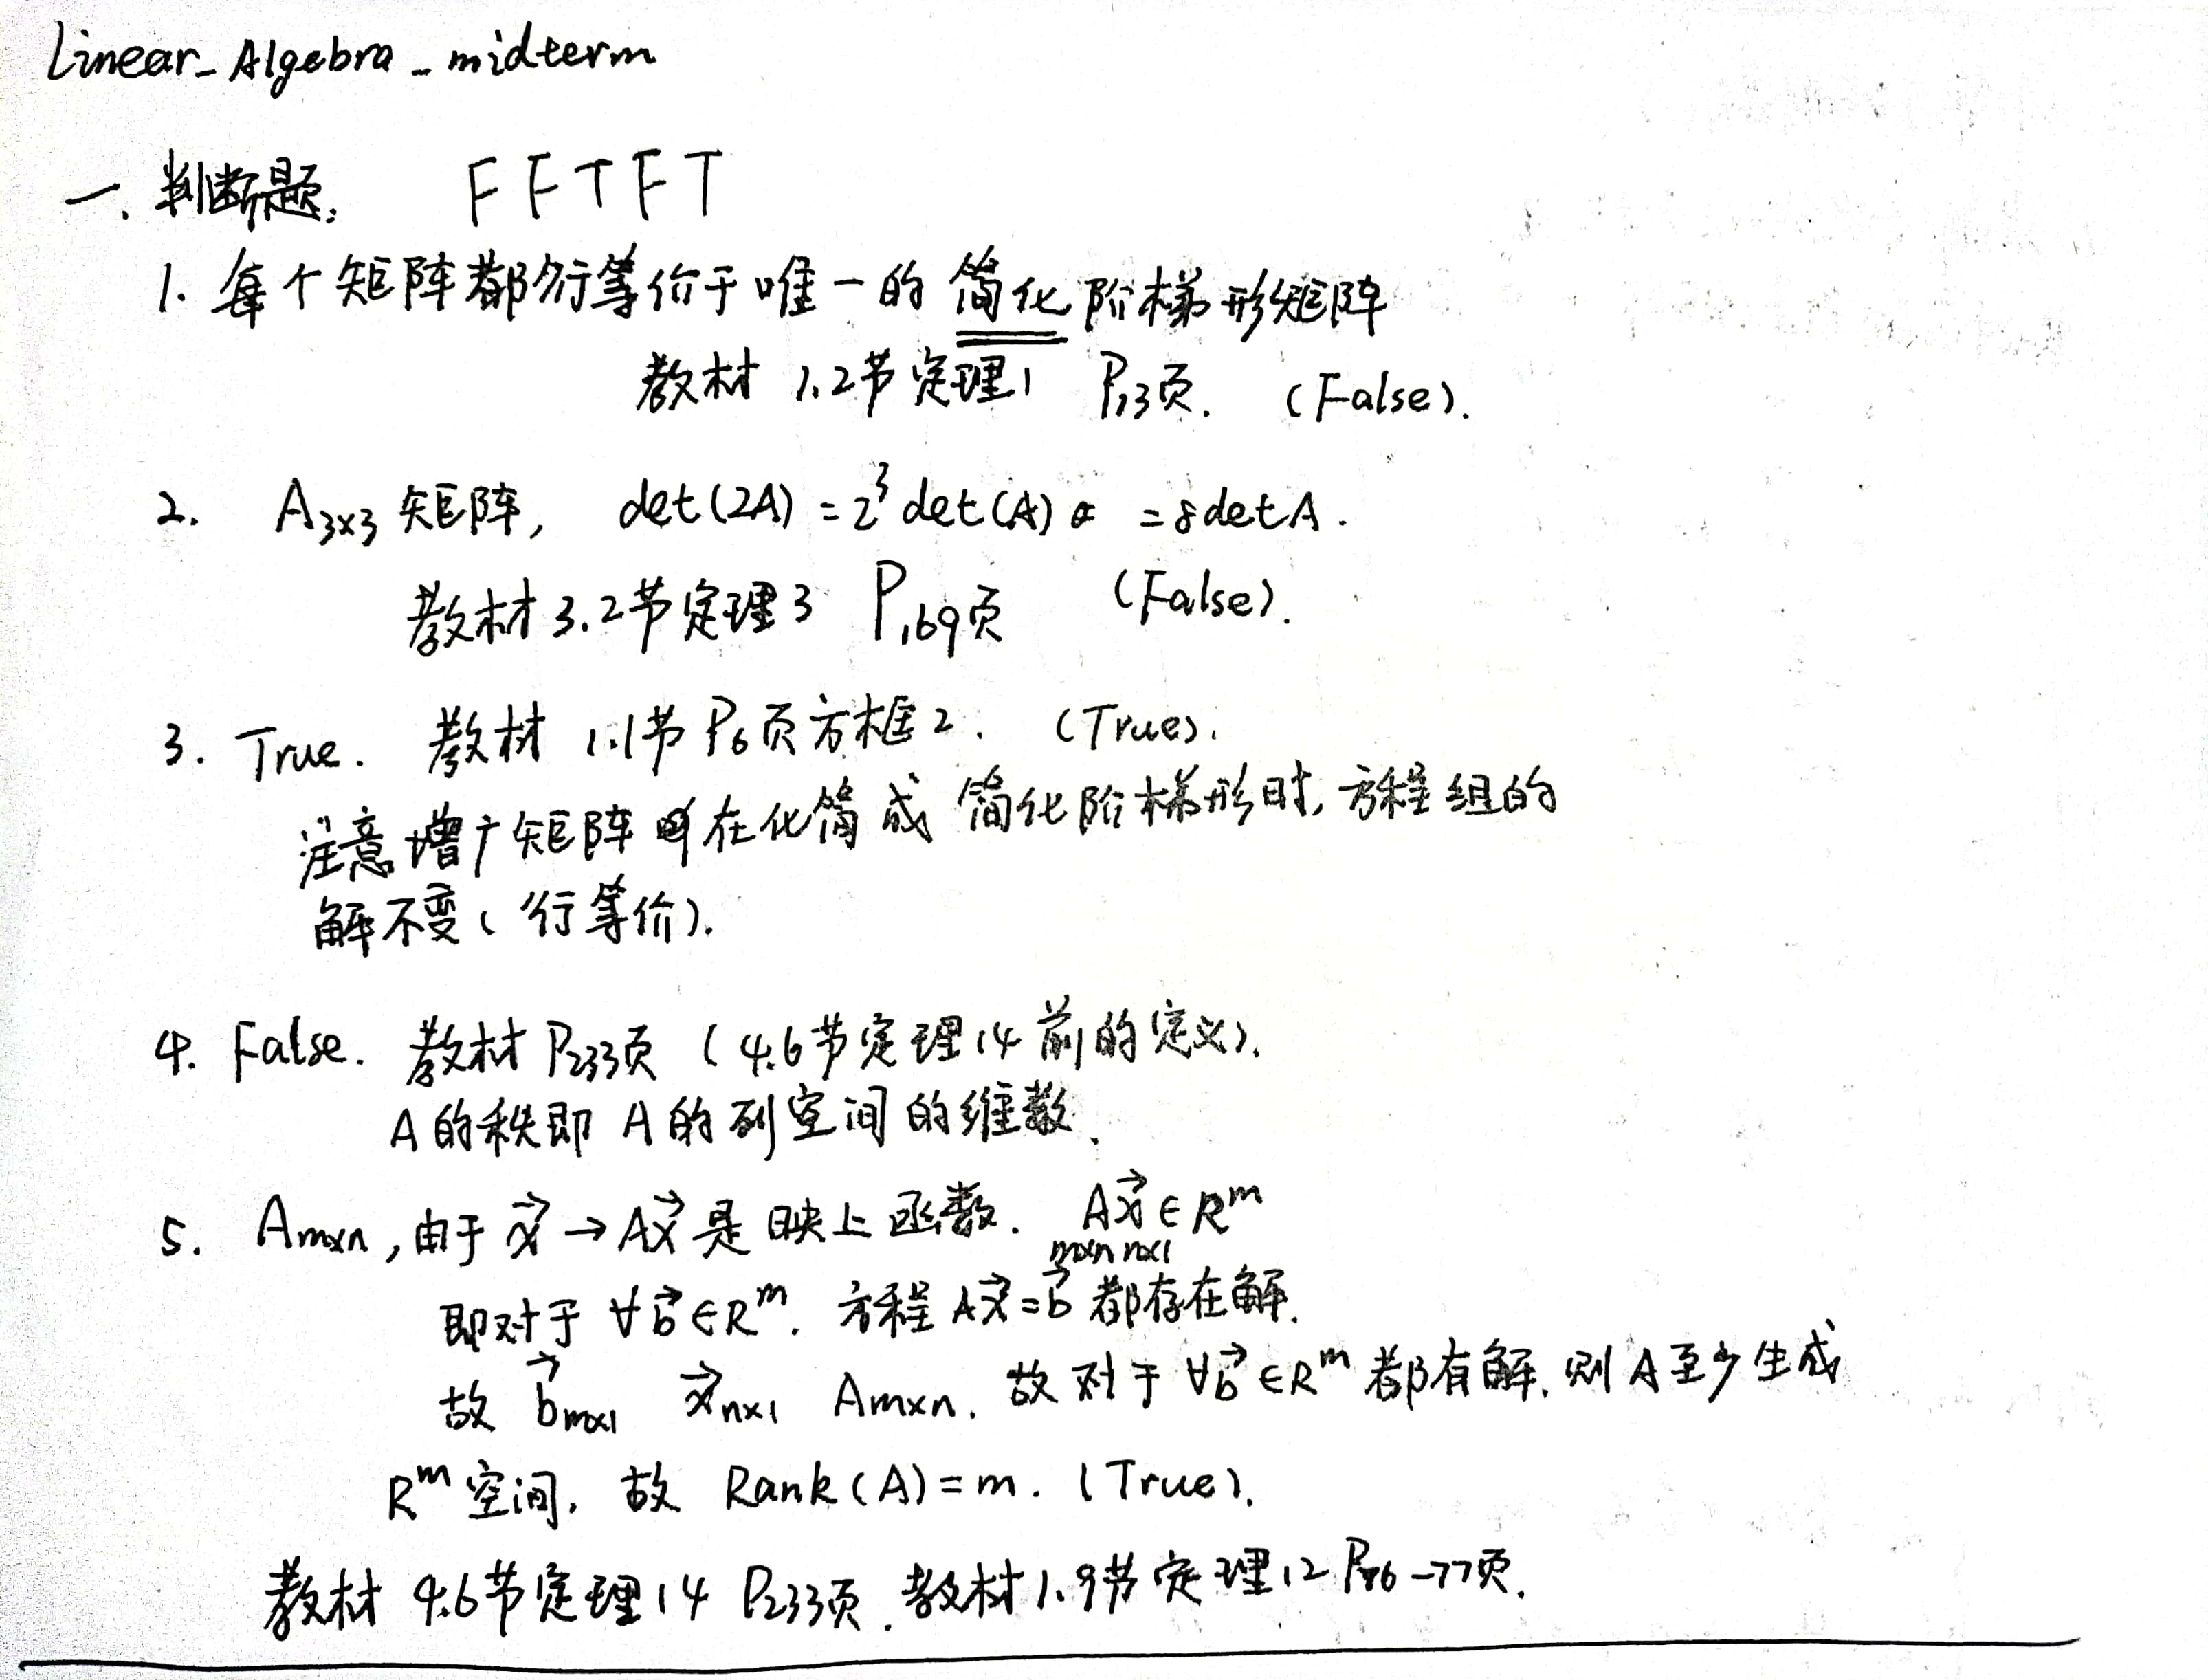 Linear_Algebra_midterm
一. 判断题: F F T F T
1. 每个矩阵都行等价于唯一的简化阶梯形矩阵
教材 1.2节定理1 P13页. (False).
2. A3×3 矩阵, det(2A) = 2³ det(A) = 8detA.
教材 3.2节定理3 P169页 (False).
3. True. 教材 1.1节 P6页方框2. (True).
注意增广矩阵在化简成 简化阶梯形时, 方程组的
解不变 (行等价).
4. False. 教材 P233页 (4.6节定理14前的定义).
A的秩即 A的列空间的维数.
5. Am×n, 由于 x⃗ → Ax⃗ 是映上函数. Ax⃗ ∈ Rᵐ
m×n n×1
即对于 ∀b⃗ ∈ Rᵐ. 方程 Ax⃗ = b⃗ 都存在解.
故 b⃗m×1 x⃗n×1 Am×n. 故对于 ∀b⃗ ∈ Rᵐ 都有解. 则 A至少生成
Rᵐ空间. 故 Rank(A) = m. (True).
教材 4.6节定理14 P233页. 教材1.9节定理12 P76-77页.